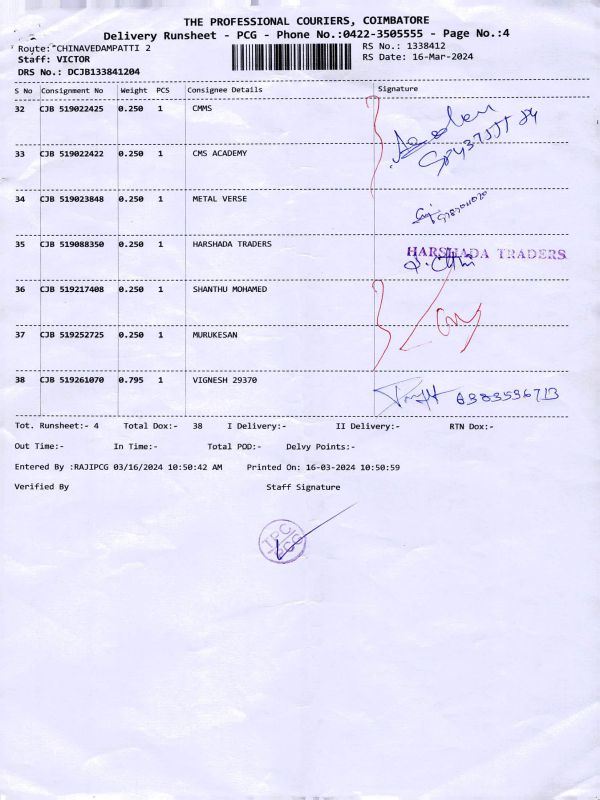 THE PROFESSIONAL COURIERS, COIMBATORE
Delivery Runsheet - PCG - Phone No.:0422-3505555 - Page No.:4
Route: CHINAVEDAMPATTI 2
RS No.: 1338412
Staff: VICTOR
RS Date: 16-Mar-2024
DRS No.: DCJB133841204
S No Consignment No Weight PCS Consignee Details Signature
32 CJB 519022425 0.250 1 CMMS
33 CJB 519022422 0.250 1 CMS ACADEMY
34 CJB 519023848 0.250 1 METAL VERSE
35 CJB 519088350 0.250 1 HARSHADA TRADERS HARSHADA TRADERS
36 CJB 519217408 0.250 1 SHANTHU MOHAMED
37 CJB 519252725 0.250 1 MURUKESAN
38 CJB 519261070 0.795 1 VIGNESH 29370 6383536713
Tot. Runsheet:- 4 Total Dox:- 38 I Delivery:- II Delivery:- RTN Dox:-
Out Time:- In Time:- Total POD:- Delvy Points:-
Entered By :RAJIPCG 03/16/2024 10:50:42 AM Printed On: 16-03-2024 10:50:59
Verified By Staff Signature
TPC
PCG